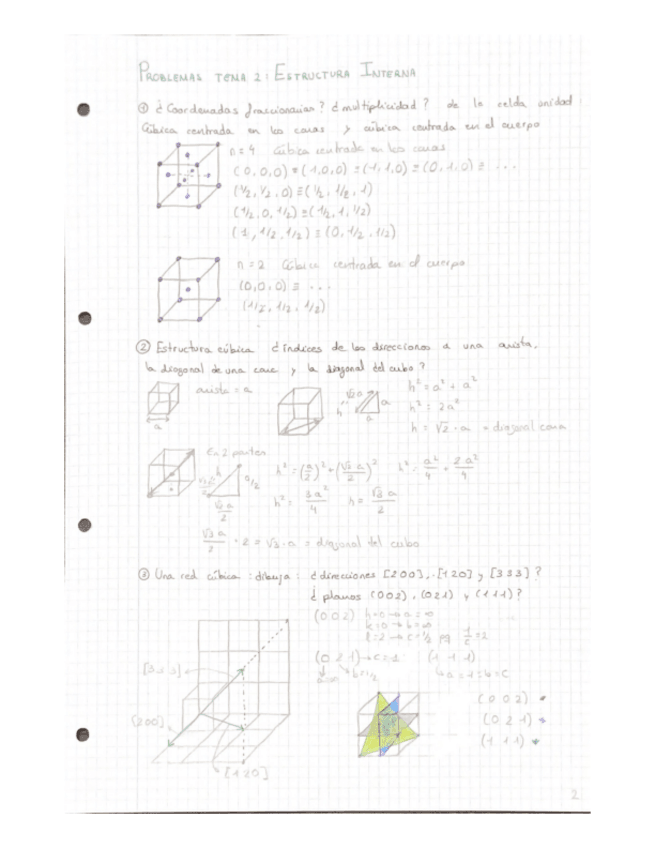 PROBLEMAS TEMA 2: ESTRUCTURA INTERNA
① ¿Coordenadas fraccionarias? ¿multiplicidad? de la celda unidad
Cúbica centrada en las caras y cúbica centrada en el cuerpo
n = 4 Cúbica centrada en las caras
(0,0,0) ≡ (1,0,0) ≡ (1,1,0) ≡ (0,1,0) ≡ ...
(1/2, 1/2, 0) ≡ (1/2, 1/2, 1)
(1/2, 0, 1/2) ≡ (1/2, 1, 1/2)
(1, 1/2, 1/2) ≡ (0, 1/2, 1/2)
n = 2 Cúbica centrada en el cuerpo
(0,0,0) ≡ ...
(1/2, 1/2, 1/2)
② Estructura cúbica ¿índices de las direcciones a una arista,
la diagonal de una cara y la diagonal del cubo?
arista = a
a
√2 a
h
a
a
h² = a² + a²
h² = 2a²
h = √2 · a = diagonal cara
En 2 partes
h
a/2
√2 a/2
h² = (a/2)² + (√2 a/2)² h² = a²/4 + 2a²/4
h² = 3a²/4 h = √3 a/2
√3 a/2 · 2 = √3 · a = diagonal del cubo
③ Una red cúbica: dibuja: ¿direcciones [200], [120] y [333]?
¿planos (002), (021) y (111)?
(002) h=0 → a=∞
k=0 → b=∞
l=2 → c=1/2 pq 1/c = 2
(0 2 1) → c=1 (1 1 1)
a=∞ b=1/2 a=1=b=c
[333]
[200]
[120]
(002)
(021)
(111)
2